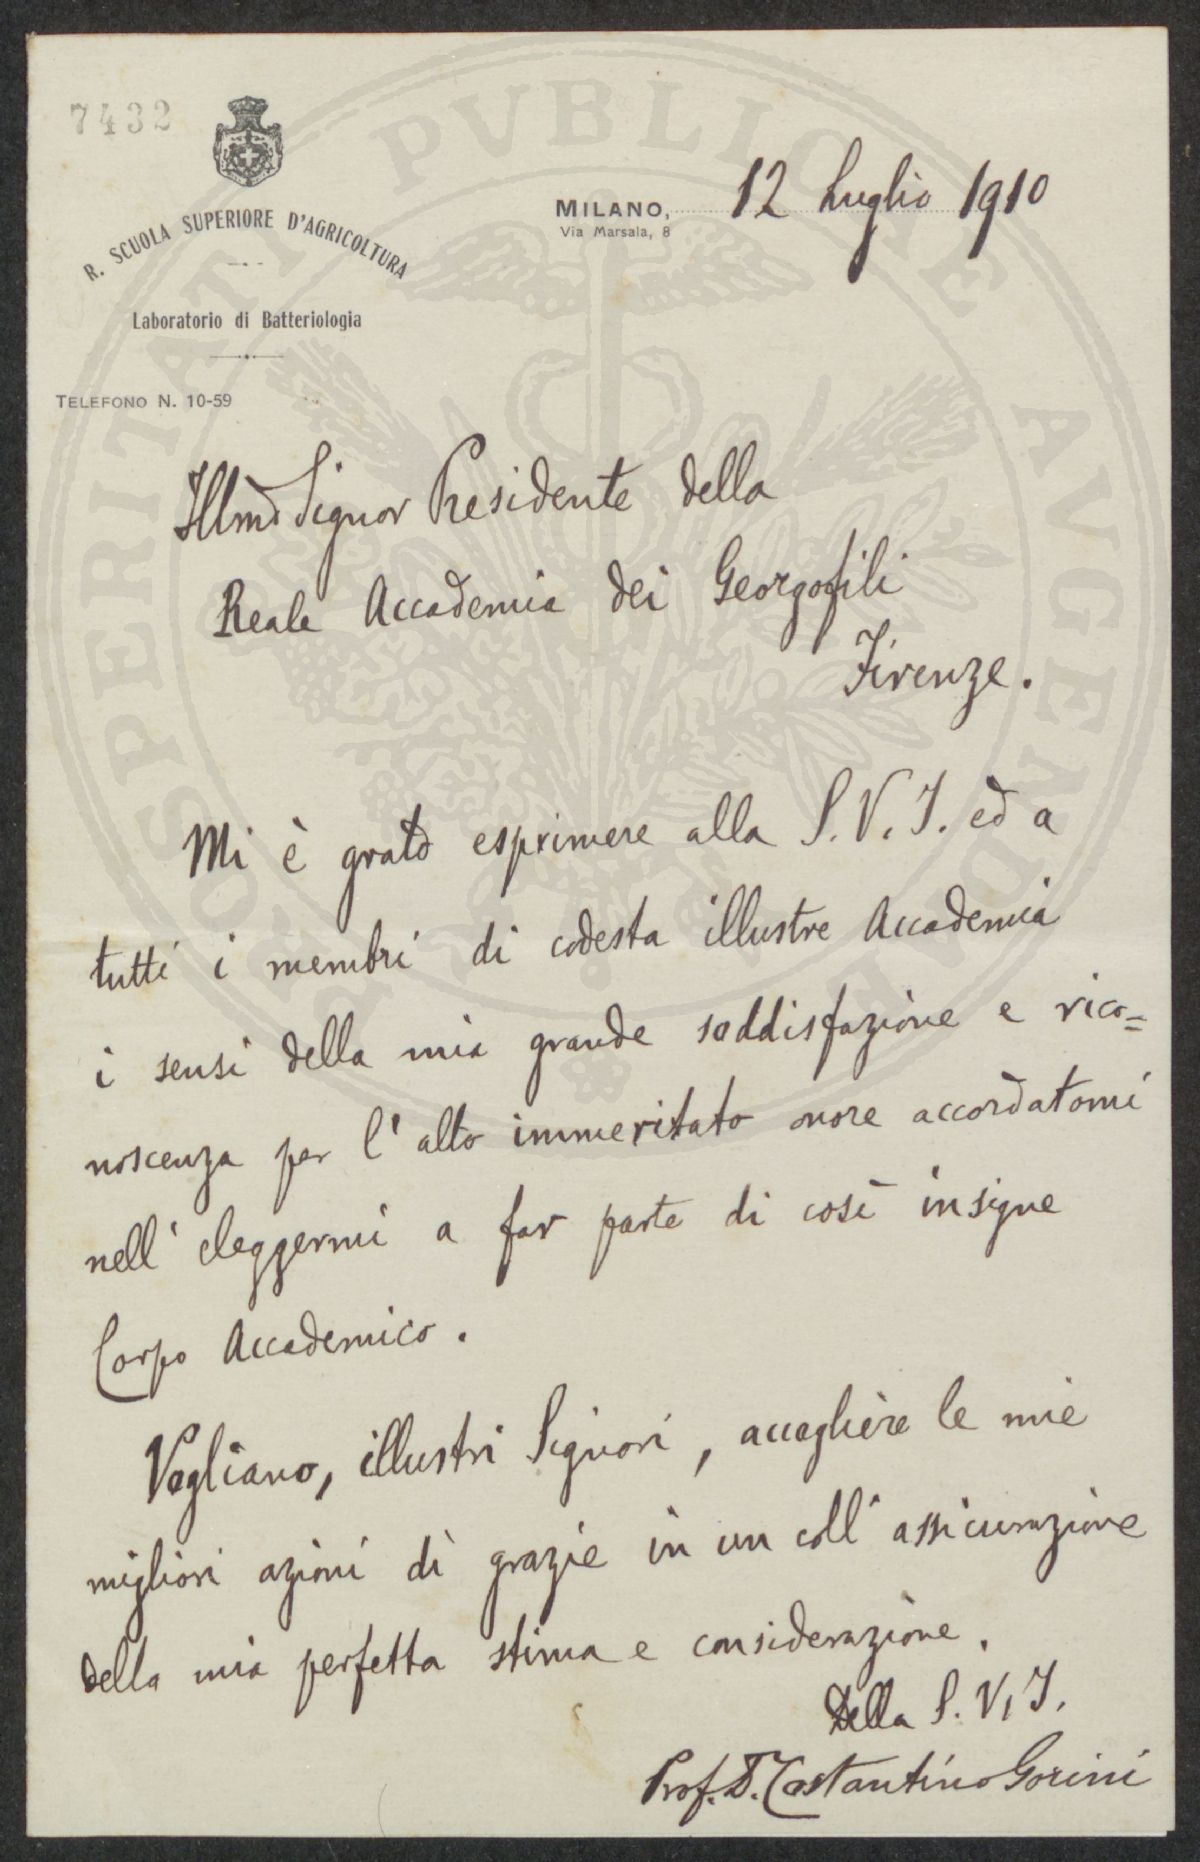 7432
R. SCUOLA SUPERIORE D'AGRICOLTURA
Laboratorio di Batteriologia
TELEFONO N. 10-59
MILANO, 12 Luglio 1910
Via Marsala, 8
Illmo Signor Presidente della
Reale Accademia dei Georgofili
Firenze.
Mi è grato esprimere alla S.V.I. ed a
tutti i membri di codesta illustre Accademia
i sensi della mia grande soddisfazione e rico=
noscenza per l'alto immeritato onore accordatomi
nell'eleggermi a far parte di così insigne
Corpo Accademico.
Vogliano, illustri Signori, accogliere le mie
migliori azioni di grazie in un coll'assicurazione
della mia perfetta stima e considerazione.
Della S.V.I.
Prof. D. Costantino Gorini
PROSPERITATI PVBLICAE AVGENDAE